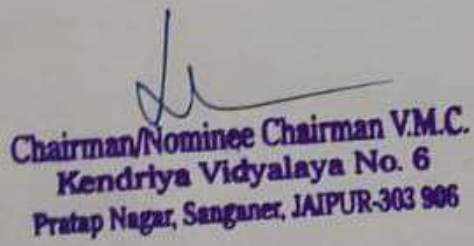 Chairman/Nominee Chairman V.M.C.
Kendriya Vidyalaya No. 6
Pratap Nagar, Sanganer, JAIPUR-303 906